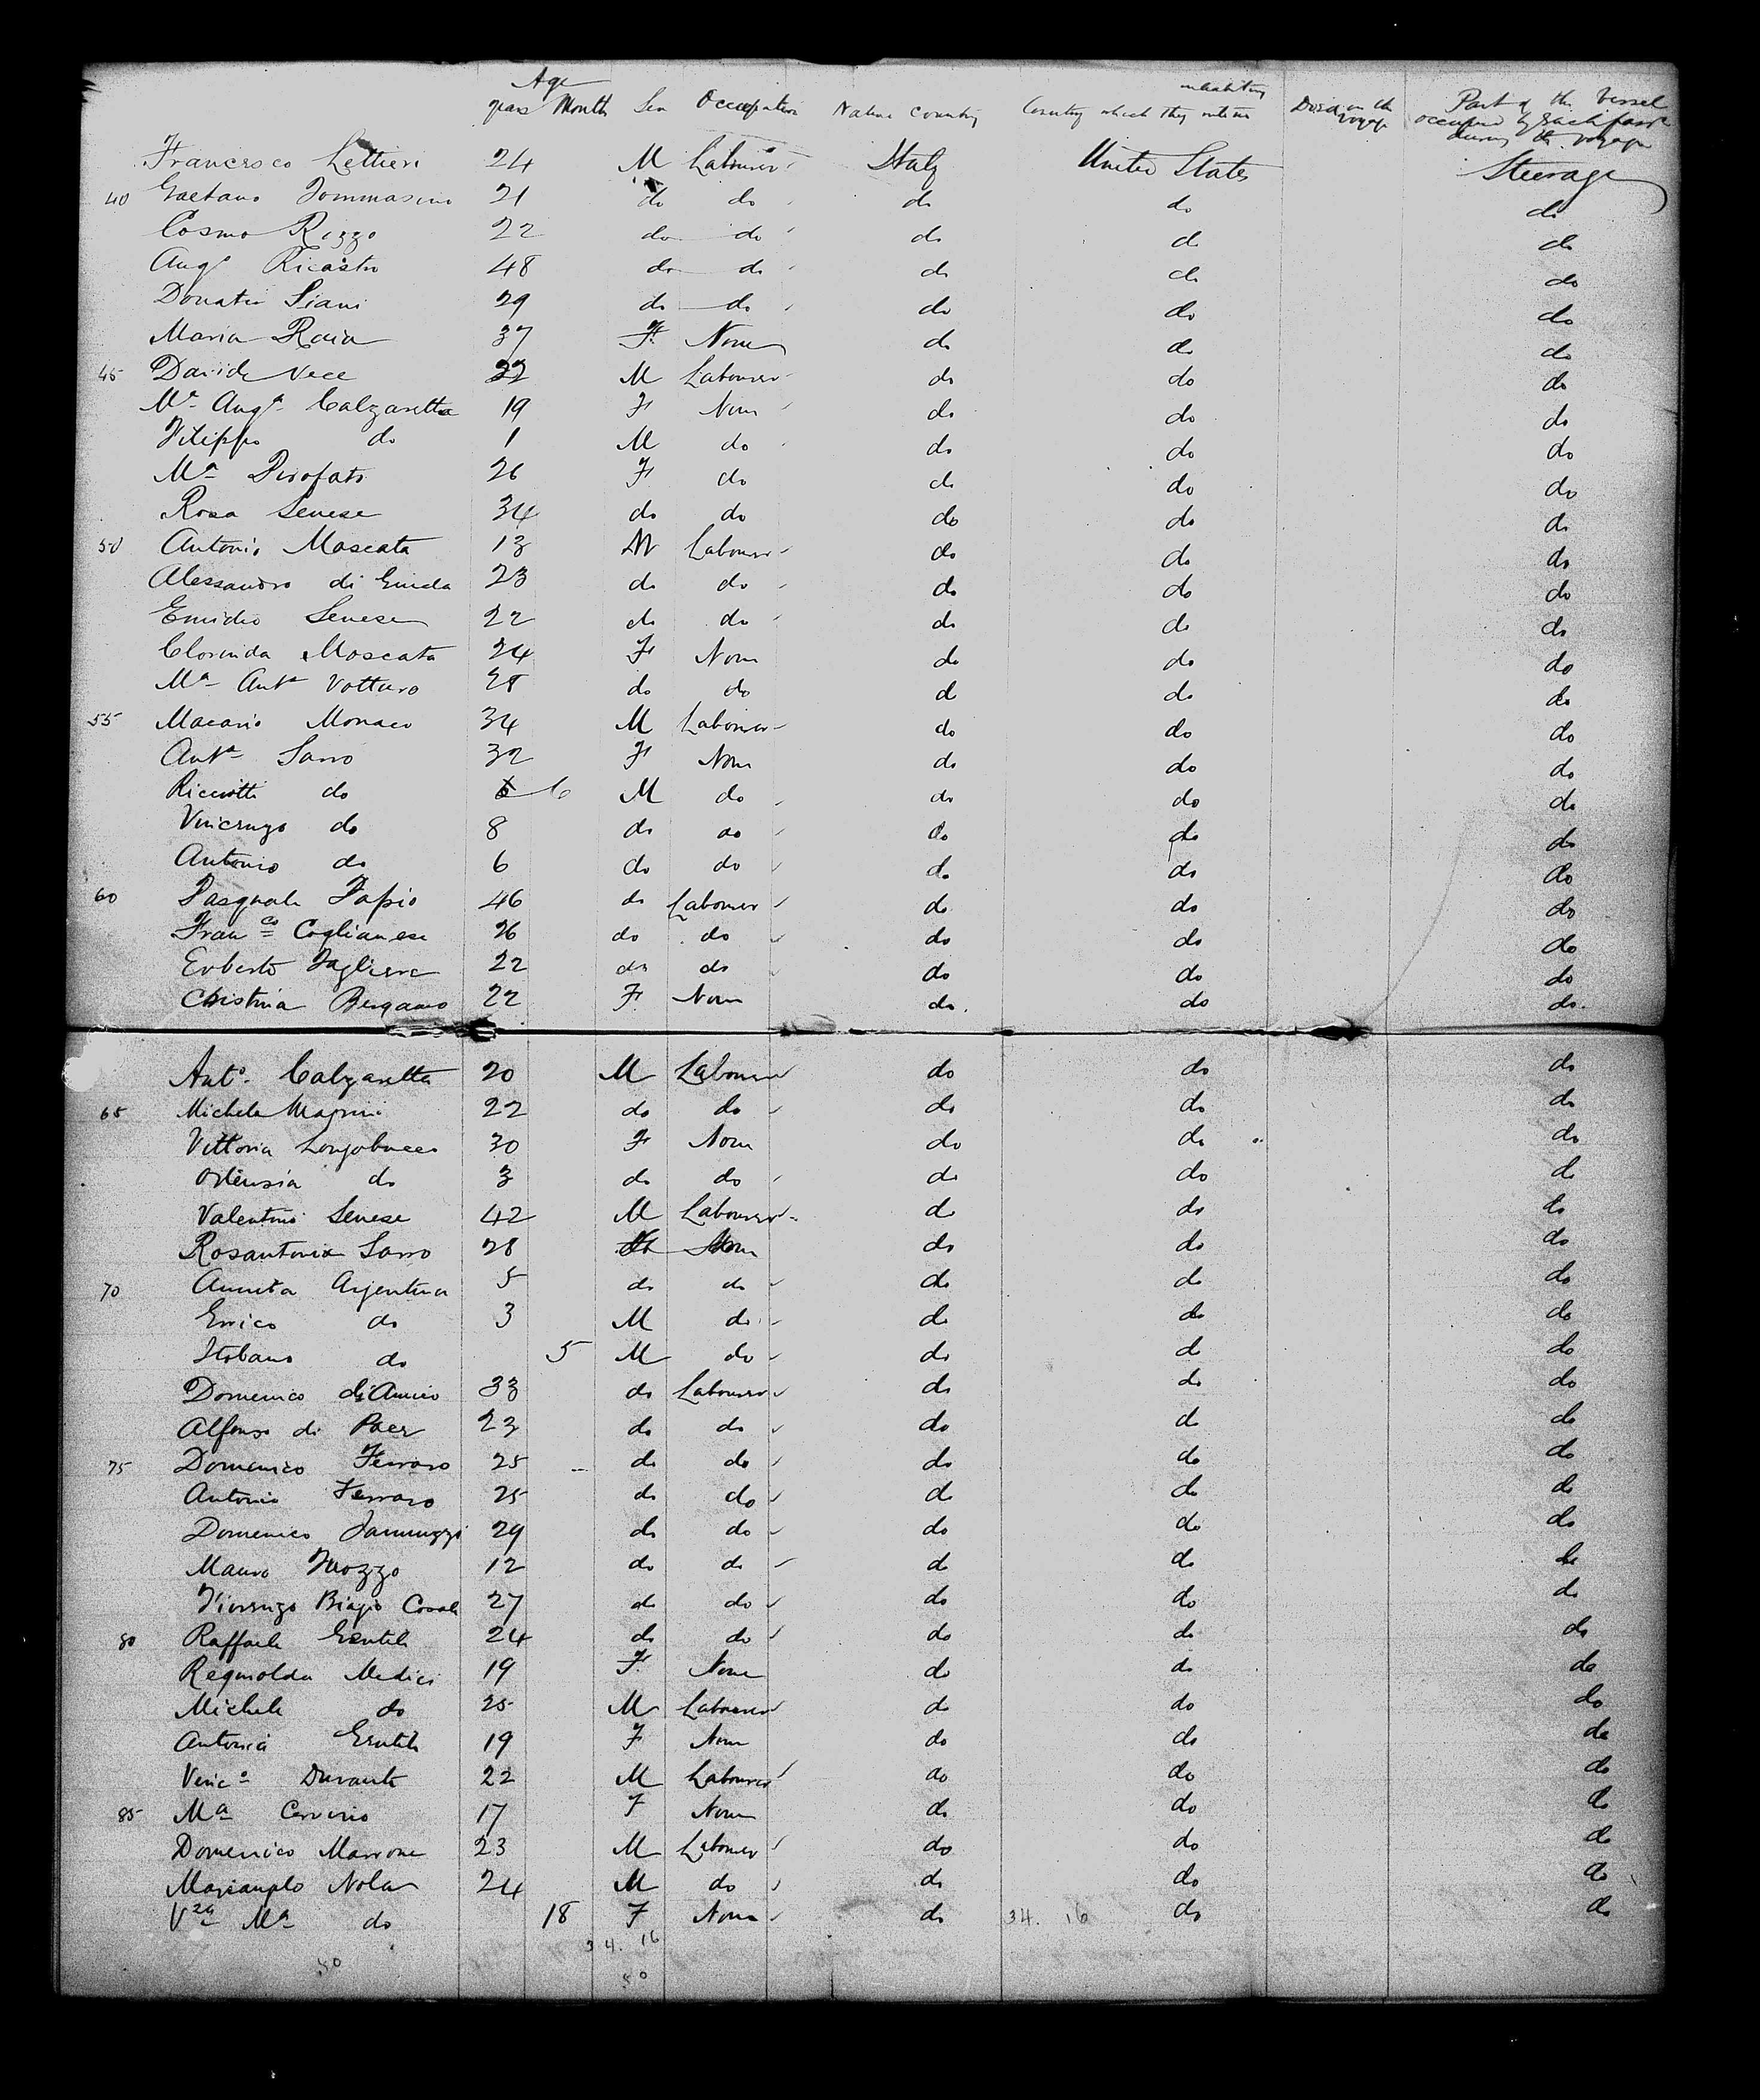 Age inhabiting
years Month Sex Occupation Native Country Country which they intend Died on the voyage Part of the Vessel occupied by each pass during the voyage
Francesco Lettieri 24 M Labourer Italy United States Steerage
40 Gaetano Tommasino 21 do do do do do
Cosmo Rizzo 22 do do do do do
Angº Ricastro 48 do do do do do
Donato Siani 29 do do do do do
Maria Raia 37 F. None do do do
45 Davide Vece 32 M Labourer do do do
Mª Angª Calzaretta 19 F None do do do
Filippo do 1 M do do do do
Mª 26 F do do do do
Rosa Senese 34 do do do do do
50 Antonio Moscata 13 M Labourer do do do
Alessandro di 23 do do do do do
Emidio Senese 22 do do do do do
Clorinda Moscata 24 F None do do do
Mª Antª Votturo 28 do do do do do
55 Macario Monaco 34 M Labourer do do do
Antª Sarro 32 F None do do do
Ricciotti do 6 M do do do do
Vincenzo do 8 do do do do do
Antonio do 6 do do do do do
60 Pasquale Papio 46 do Labourer do do do
Franco Coglianese 26 do do do do do
Erberto Tagliere 22 do do do do do
Christina Bergamo 22 F. None do. do do.
Antº Calzaretta 20 M Labourer do do do
65 Michele 22 do do do do do
Vittoria Longobucco 30 F None do do do
Ortensia do 3 do do do do do
Valentino Senese 42 M Labourer do do do
Rosantonia Sarro 28 None do do do
70 Annita Argentina 5 do do do do do
Errico do 3 M do do do do
Itobano do 5 M do do do do
Domenico di Amico 33 do Labourer do do do
Alfonso di Pace 23 do do do do do
75 Domenico Ferraro 25 do do do do do
Antonio Ferraro 25 do do do do do
Domenico 29 do do do do do
Mauro 12 do do do do do
Biagio 27 do do do do do
80 Raffaele Gentile 24 do do do do do
Reginolda Medici 19 F. None do do do
Michele do 25 M Labourer do do do
Antonia Gentile 19 F None do do do
Vincº Durante 22 M Labourer do do do
85 Mª Cervino 17 F None do do do
Domenico Marrone 23 M Labourer do do do
Mariangelo Nola 24 M do do do do
Vzª Mª do 18 F None do 34. 16 do do
34. 16
50 50